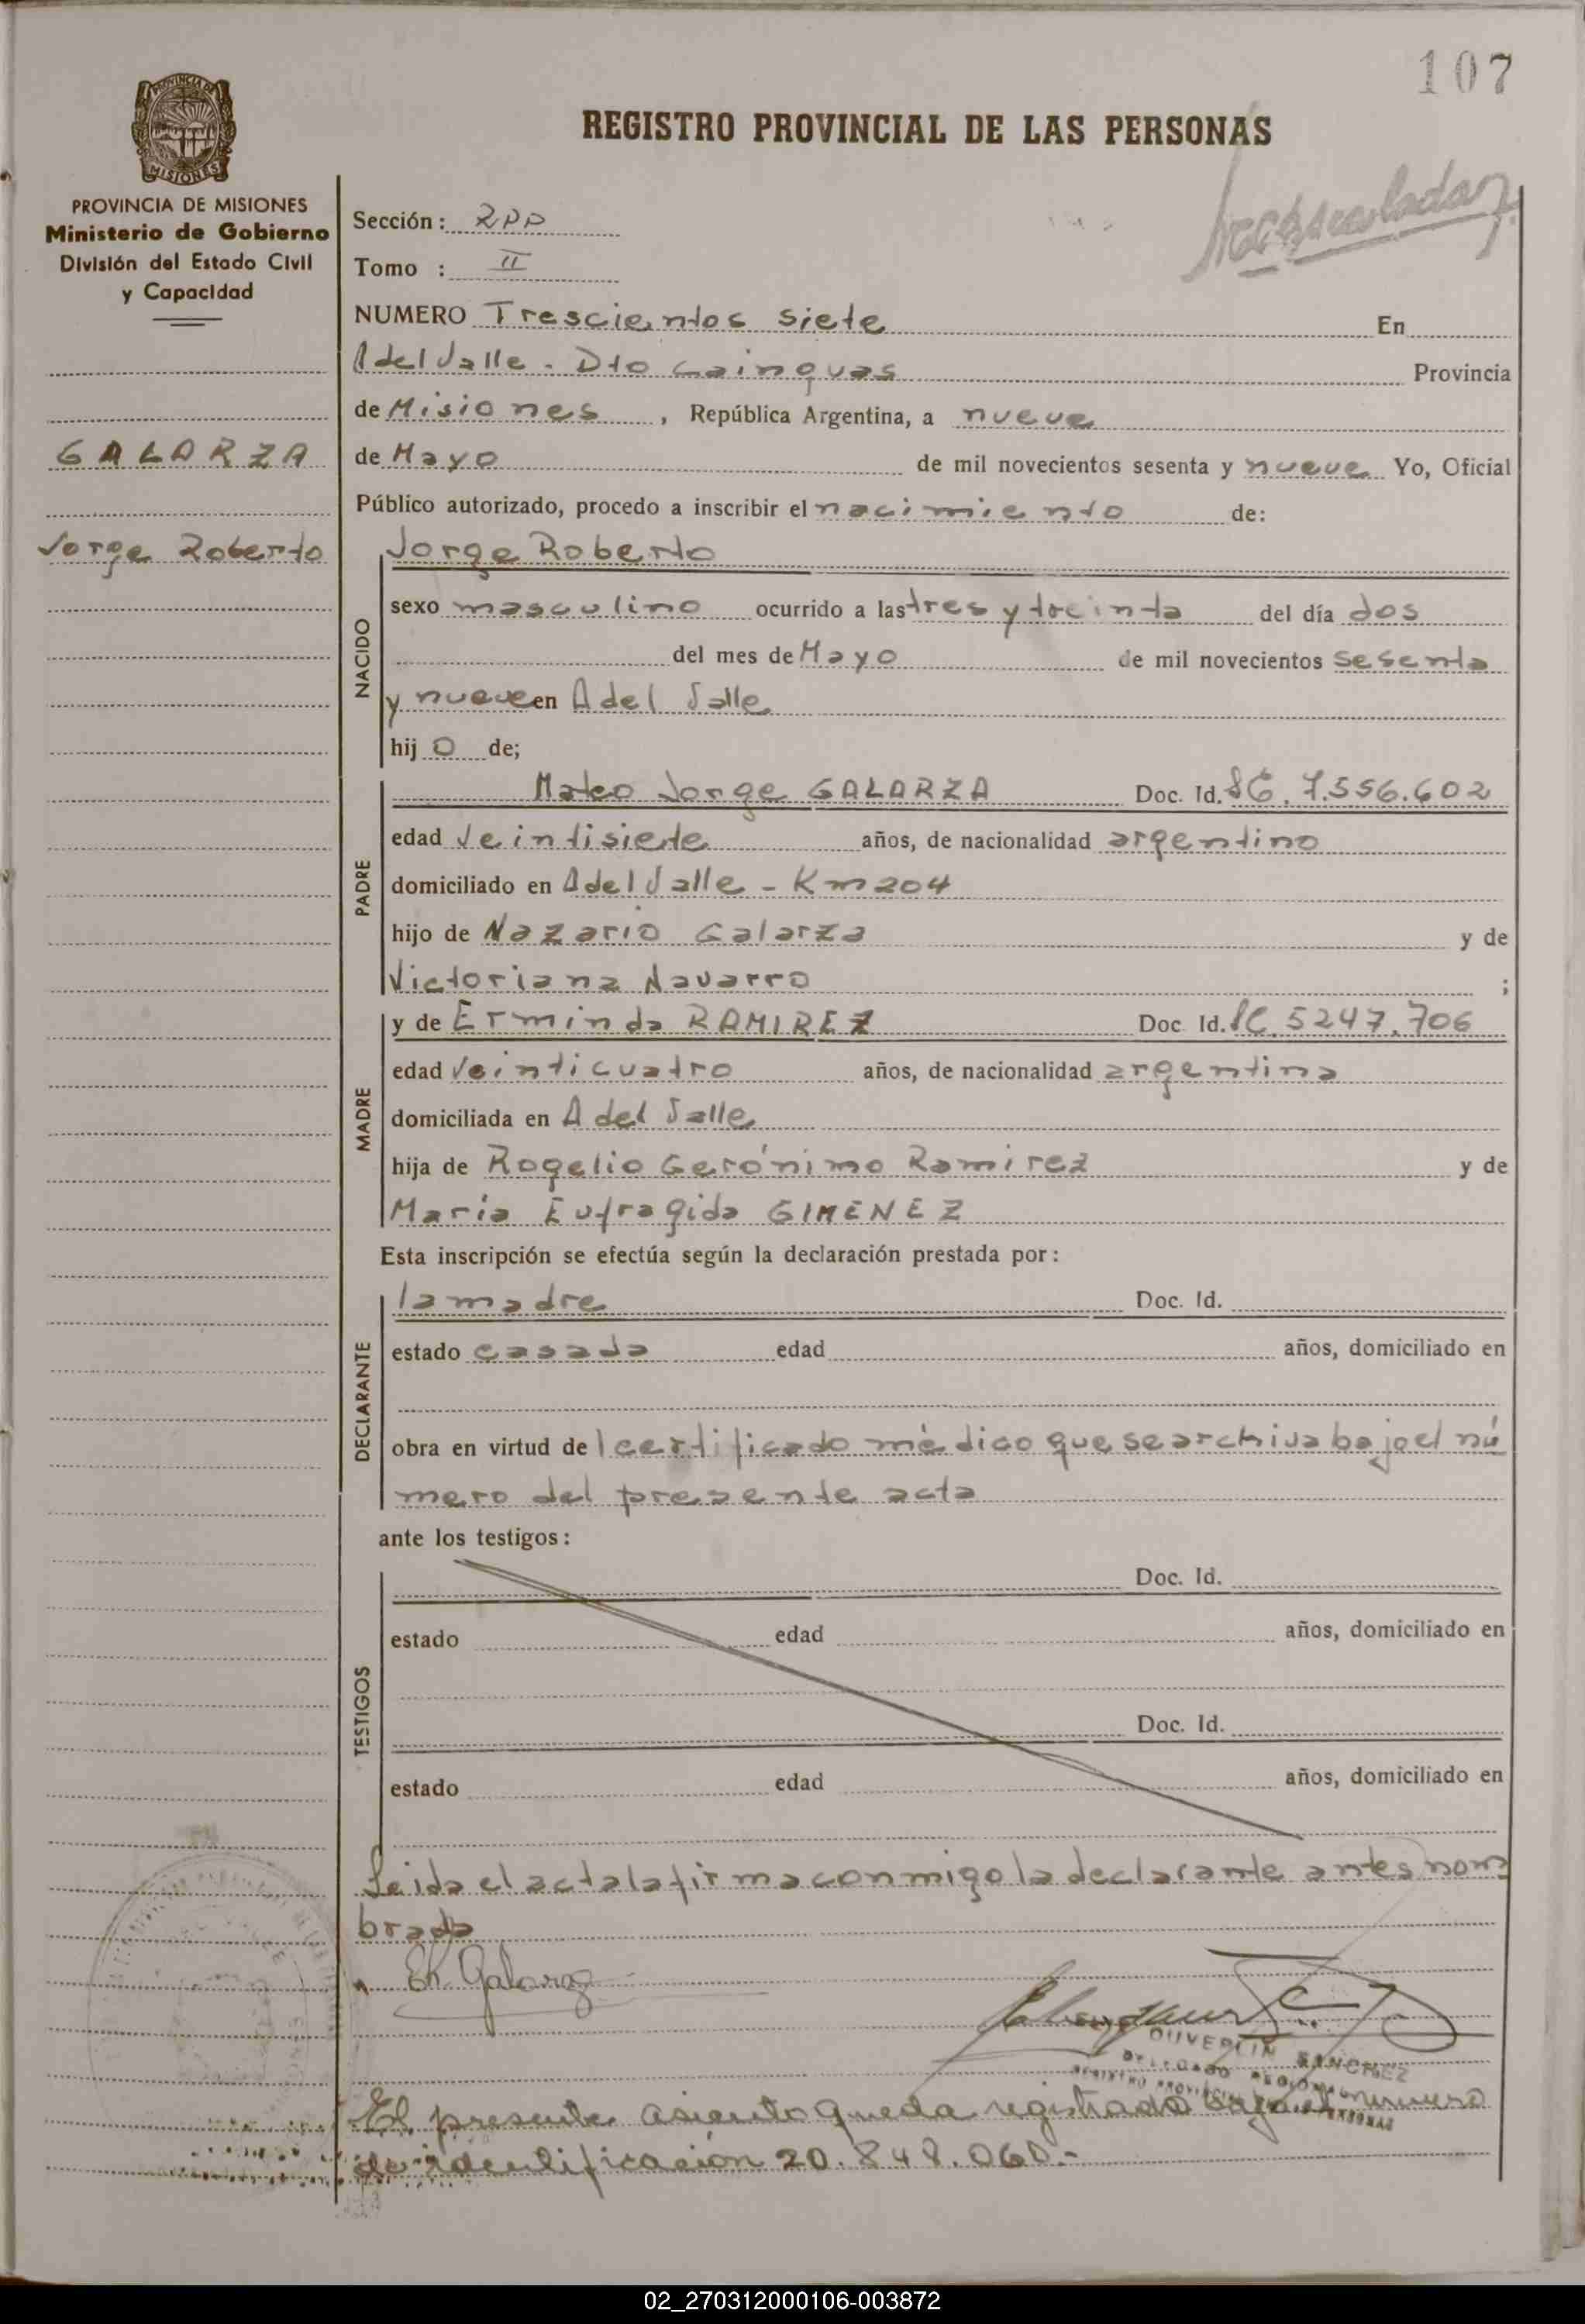 107
REGISTRO PROVINCIAL DE LAS PERSONAS
PROVINCIA DE MISIONES
MISIONES
PROVINCIA DE MISIONES
Ministerio de Gobierno
División del Estado Civil
y Capacidad
GALARZA
Jorge Roberto
Sección: RPP
Tomo : II
NUMERO Trescientos siete En
A del Valle - Dto Cainguas Provincia
de Misiones, República Argentina, a nueve
de Mayo de mil novecientos sesenta y nueve Yo, Oficial
Público autorizado, procedo a inscribir el nacimiento de:
NACIDO
Jorge Roberto
sexo masculino ocurrido a las tres y treinta del día dos
del mes de Mayo de mil novecientos sesenta
y nueve en A del Valle
hijo de;
PADRE
Mateo Jorge GALARZA Doc. Id. 7.556.602
edad Veintisiete años, de nacionalidad argentino
domiciliado en A del Valle - Km 204
hijo de Nazario Galarza y de
Victoriana Navarro ;
MADRE
y de Erminda RAMIREZ Doc Id. 5247.706
edad Veinticuatro años, de nacionalidad argentina
domiciliada en A del Valle
hija de Rogelio Gerónimo Ramirez y de
María Eufragida GIMENEZ
Esta inscripción se efectúa según la declaración prestada por:
DECLARANTE
la madre Doc. Id.
estado casada edad años, domiciliado en
obra en virtud del certificado médico que se archiva bajo el nú
mero del presente acta
ante los testigos:
TESTIGOS
Doc. Id.
estado edad años, domiciliado en
Doc. Id.
estado edad años, domiciliado en
Leida el acta la firma conmigo la declarante antes nom
brada
Galarza
OUVERLIN SANCHEZ
DELEGADO REGIONAL
REGISTRO PROVINCIAL PERSONAS
El presente asiento queda registrado bajo el numero
de identificación 20.848.060.-
02_270312000106-003872